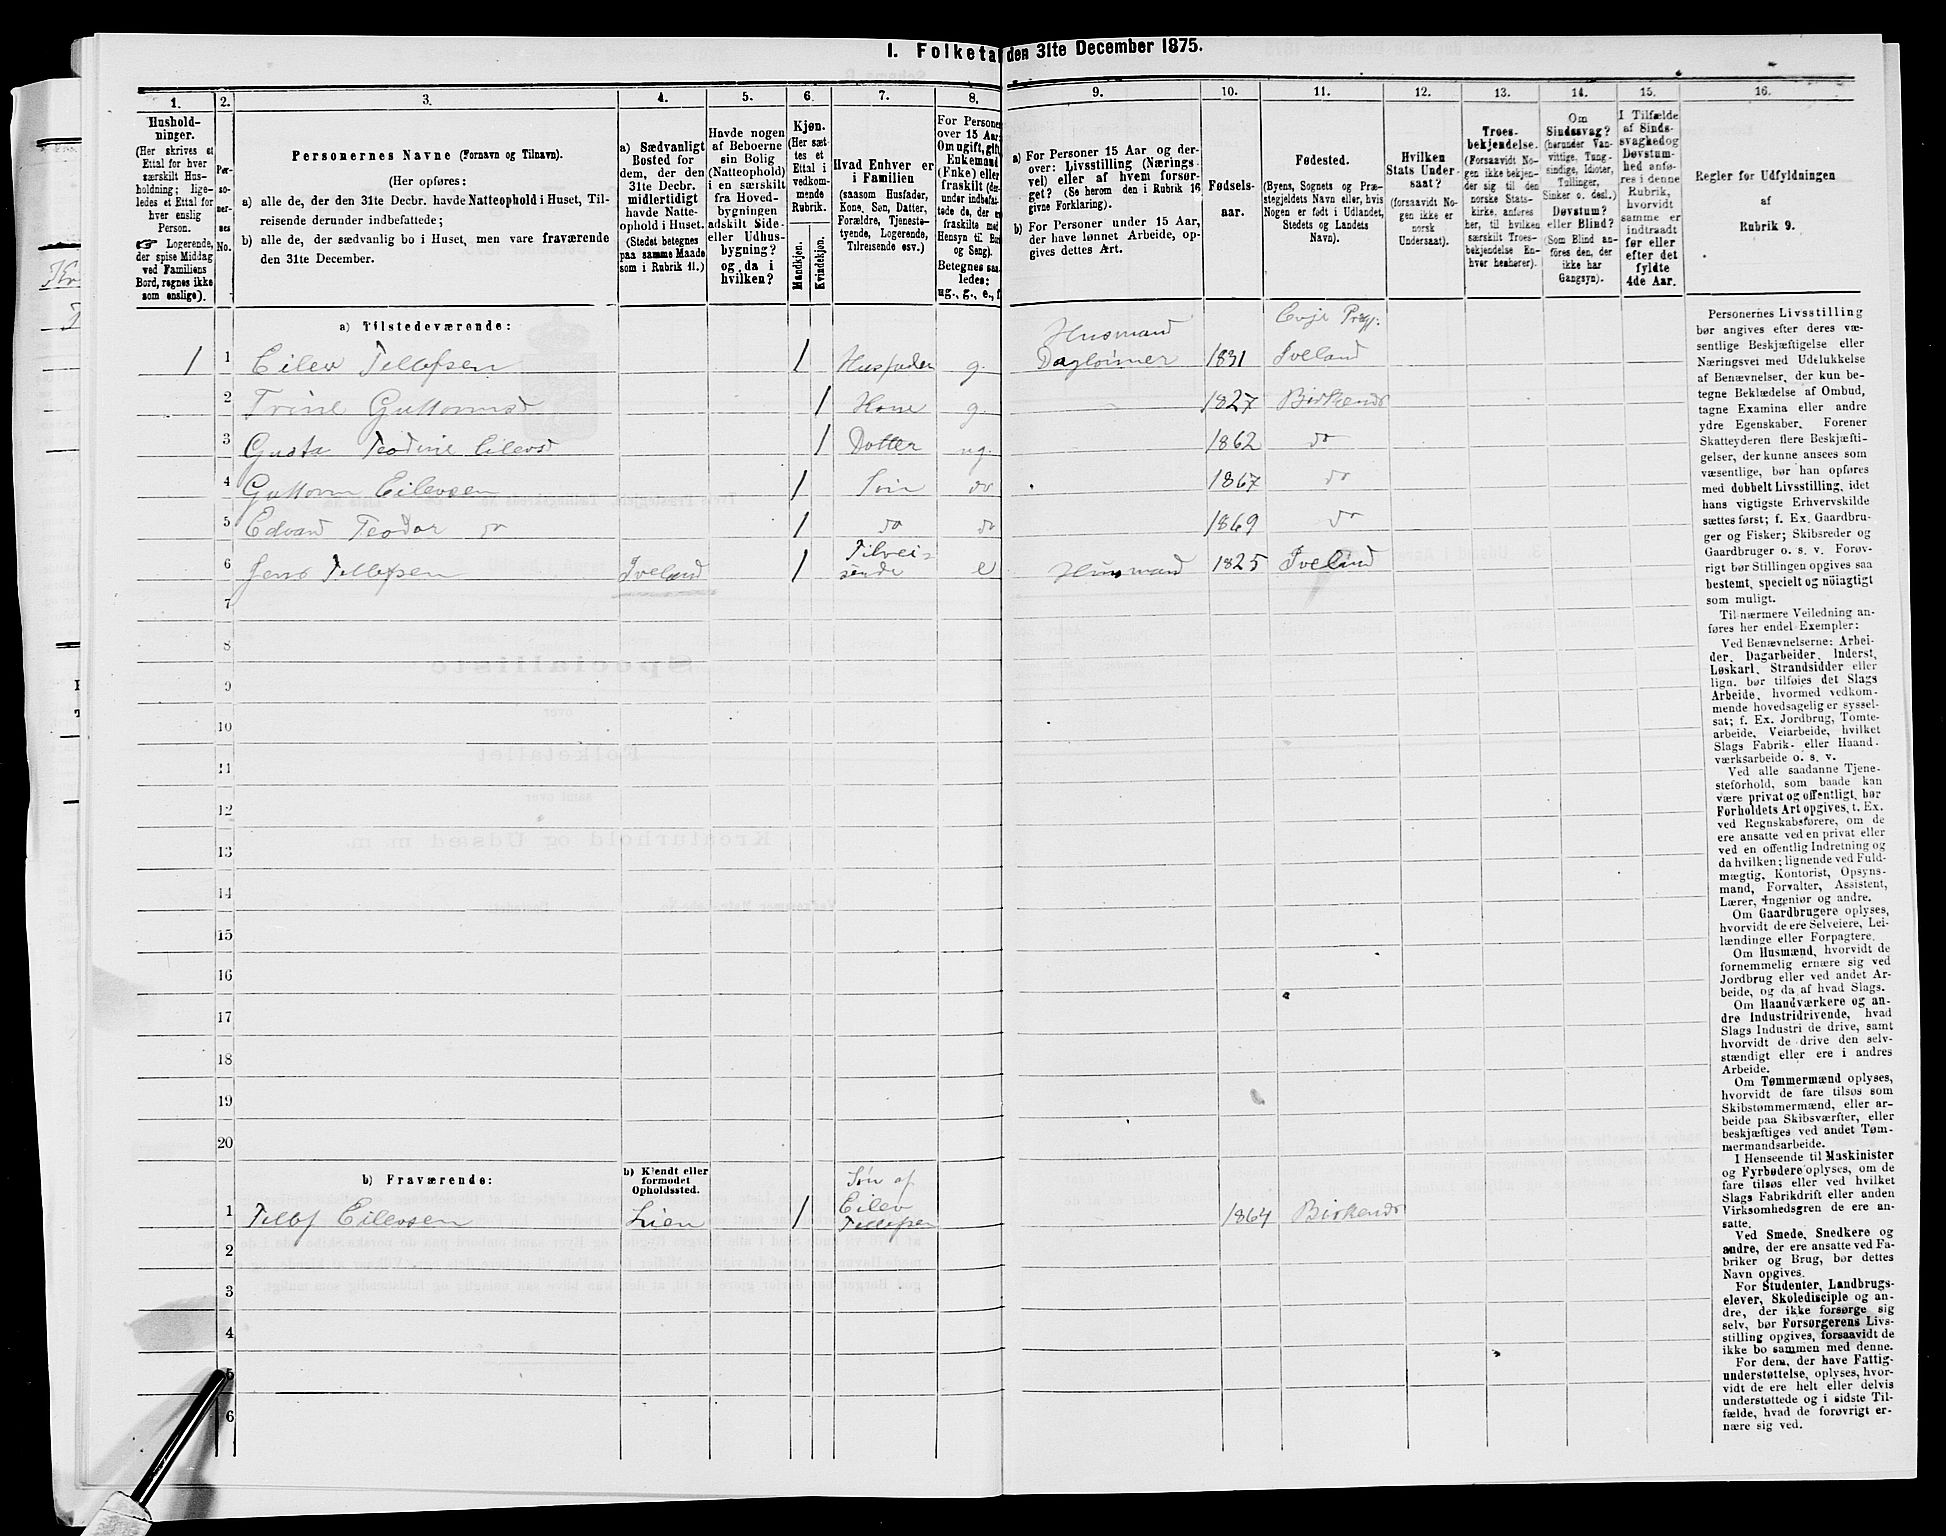 I. Folketal den 31te December 1875.
1. 2. 3. 4. 5. 6. 7. 8. 9. 10. 11. 12. 13. 14. 15. 16.
Hushold-
ninger.
(Her skrives et
Ettal for hver
særskilt Hus-
holdning; lige-
ledes et Ettal for
hver enslig
Person.
☞ Logerende,
der spise Middag
ved Familiens
Bord, regnes ikke
som enslige).
Per-
so-
ner-
nes
No.
Personernes Navne (Fornavn og Tilnavn).
(Her opføres:
a) alle de, der den 31te Decbr. havde Natteophold i Huset, Til-
reisende derunder indbefattede;
b) alle de, der sædvanlig bo i Huset, men vare fraværende
den 31te December.
a) Sædvanligt
Bosted for
dem, der den
31te Decbr.
midlertidigt
havde Natte-
ophold i Huset.
(Stedet betegnes
paa samme Maade
som i Rubrik 11.)
Havde nogen
af Beboerne
sin Bolig
(Natteophold)
i en særskilt
fra Hoved-
bygningen
adskilt Side-
eller Udhus-
bygning?
og da i
hvilken?
Kjøn.
(Her sæt-
tes et
Ettal i
vedkom-
mende
Rubrik.
Mandkjøn.
Kvindekjøn.
Hvad Enhver er
i Familien
(saasom Husfader,
Kone, Søn, Datter,
Forældre, Tjeneste-
tyende, Logerende,
Tilreisende osv.)
For Personer
over 15 Aar:
Om ugift, gift,
Enkemand
(Enke) eller
fraskilt (der-
under indbefat-
tede de, der er
fraskilte med
Hensyn til Bord
og Seng).
Betegnes saa-
ledes:
ug., g., e., f.
a) For Personer 15 Aar og der-
over: Livsstilling (Nærings-
vei) eller af hvem forsør-
get? (Se herom den i Rubrik 16
givne Forklaring).
b) For Personer under 15 Aar,
der have lønnet Arbeide, op-
gives dettes Art.
Fødsels-
aar.
Fødested.
(Byens, Sognets og Præ-
stegjeldets Navn eller, hvis
Nogen er født i Udlandet,
Stedets og Landets
Navn).
Hvilken
Stats Under-
saat?
(forsaavidt No-
gen ikke er
norsk
Undersaat).
Troes-
bekjendelse.
(Forsaavidt No-
gen ikke bekjen-
der sig til den
norske Stats-
kirke, anføres
her, til hvilken
særskilt Troes-
bekjendelse En-
hver henhører).
Om
Sindssvag?
(herunder Van-
vittige, Tung-
sindige, Idioter,
Tullinger,
Sinker o. desl.)
Døvstum?
eller Blind?
(Som Blind an-
føres den, der
ikke har
Gangsyn).
I Tilfælde
af Sinds-
svaghed og
Døvstum-
hed anfø-
res i denne
Rubrik,
hvorvidt
samme er
indtraadt
før eller
efter det
fyldte
4de Aar.
Regler for Udfyldningen
af
Rubrik 9.
a) Tilstedeværende:
Evje Prgj:
Husmand
1 1 Eilev Tellefsen 1 Husfader g. Dagleinner 1831 Iveland
2 Trine Guttormsd 1 Kone g. 1827 Birkends
3 Gusta Teodine Eilevsd 1 Dotter ug. 1862 do
4 Guttorm Eilevsen 1 Søn do 1867 do
5 Edvard Teodor do 1 do do 1869 do
6 Jens Tellefsen Iveland 1 Tilrei-
sende e Husmand 1825 Iveland
7
8
9
10
11
12
13
14
15
16
17
18
19
20
b) Fraværende:
b) Kjendt eller
formodet
Opholdssted.
1 Tellef Eilevsen Lien 1 Søn af
Eilev
Tellefsen 1864 Birkends
2
3
4
5
6
Personernes Livsstilling
bør angives efter deres væ-
sentlige Beskjæftigelse eller
Næringsvei med Udelukkelse
af Benævnelser, der kun be-
tegne Beklædelse af Ombud,
tagne Examina eller andre
ydre Egenskaber. Forener
Skatteyderen flere Beskjæfti-
gelser, der kunne ansees som
væsentlige, bør han opføres
med dobbelt Livsstilling, idet
hans vigtigste Erhvervskilde
sættes først; f. Ex. Gaardbru-
ger og Fisker; Skibsreder og
Gaardbruger o. s. v. Forøv-
rigt bør Stillingen opgives saa
bestemt, specielt og nöiagtigt
som muligt.
Til nærmere Veiledning an-
føres her endel Exempler:
Ved Benævnelserne: Arbei-
der, Dagarbeider, Inderst,
Løskarl, Strandsidder eller
lign. bør tilføies det Slags
Arbeide, hvormed vedkom-
mende hovedsagelig er syssel-
sat; f. Ex. Jordbrug, Tomte-
arbeide, Veiarbeide, hvilket
Slags Fabrik- eller Haand-
værksarbeide o. s. v.
Ved alle saadanne Tjene-
steforhold, som baade kan
være privat og offentligt, bør
Forholdets Art opgives, t. Ex.
ved Regnskabsførere, om de
ere ansatte ved en privat eller
ved en offentlig Indretning og
da hvilken; lignende ved Fuld-
mægtig, Kontorist, Opsyns-
mand, Forvalter, Assistent,
Lærer, Ingeniør og andre.
Om Gaardbrugere oplyses,
hvorvidt de ere Selveiere, Lei-
lændinge eller Forpagtere.
Om Husmænd, hvorvidt de
fornemmelig ernære sig ved
Jordbrug eller ved andet Ar-
beide, og da af hvad Slags.
Om Haandværkere og an-
dre Industridrivende, hvad
Slags Industri de drive, samt
hvorvidt de drive den selv-
stændigt eller ere i andres
Arbeide.
Om Tømmermænd oplyses,
hvorvidt de fare tilsøs som
Skibstømmermænd, eller ar-
beide paa Skibsværfter, eller
beskjæftiges ved andet Tøm-
mermandsarbeide.
I Henseende til Maskinister
og Fyrbødere oplyses, om de
fare tilsøs eller ved hvilket
Slags Fabrikdrift eller anden
Virksomhedsgren de ere an-
satte.
Ved Smede, Snedkere og
andre, der ere ansatte ved Fa-
briker og Brug, bør dettes
Navn opgives.
For Studenter, Landbrugs-
elever, Skoledisciple og an-
dre, der ikke forsørge sig
selv, bør Forsørgerens Livs-
stilling opgives, forsaavidt de
ikke bo sammen med denne.
For dem, der have Fattig-
understøttelse, oplyses, hvor-
vidt de ere helt eller delvis
understøttede og i sidste Til-
fælde, hvad de forøvrigt er-
nære sig ved.